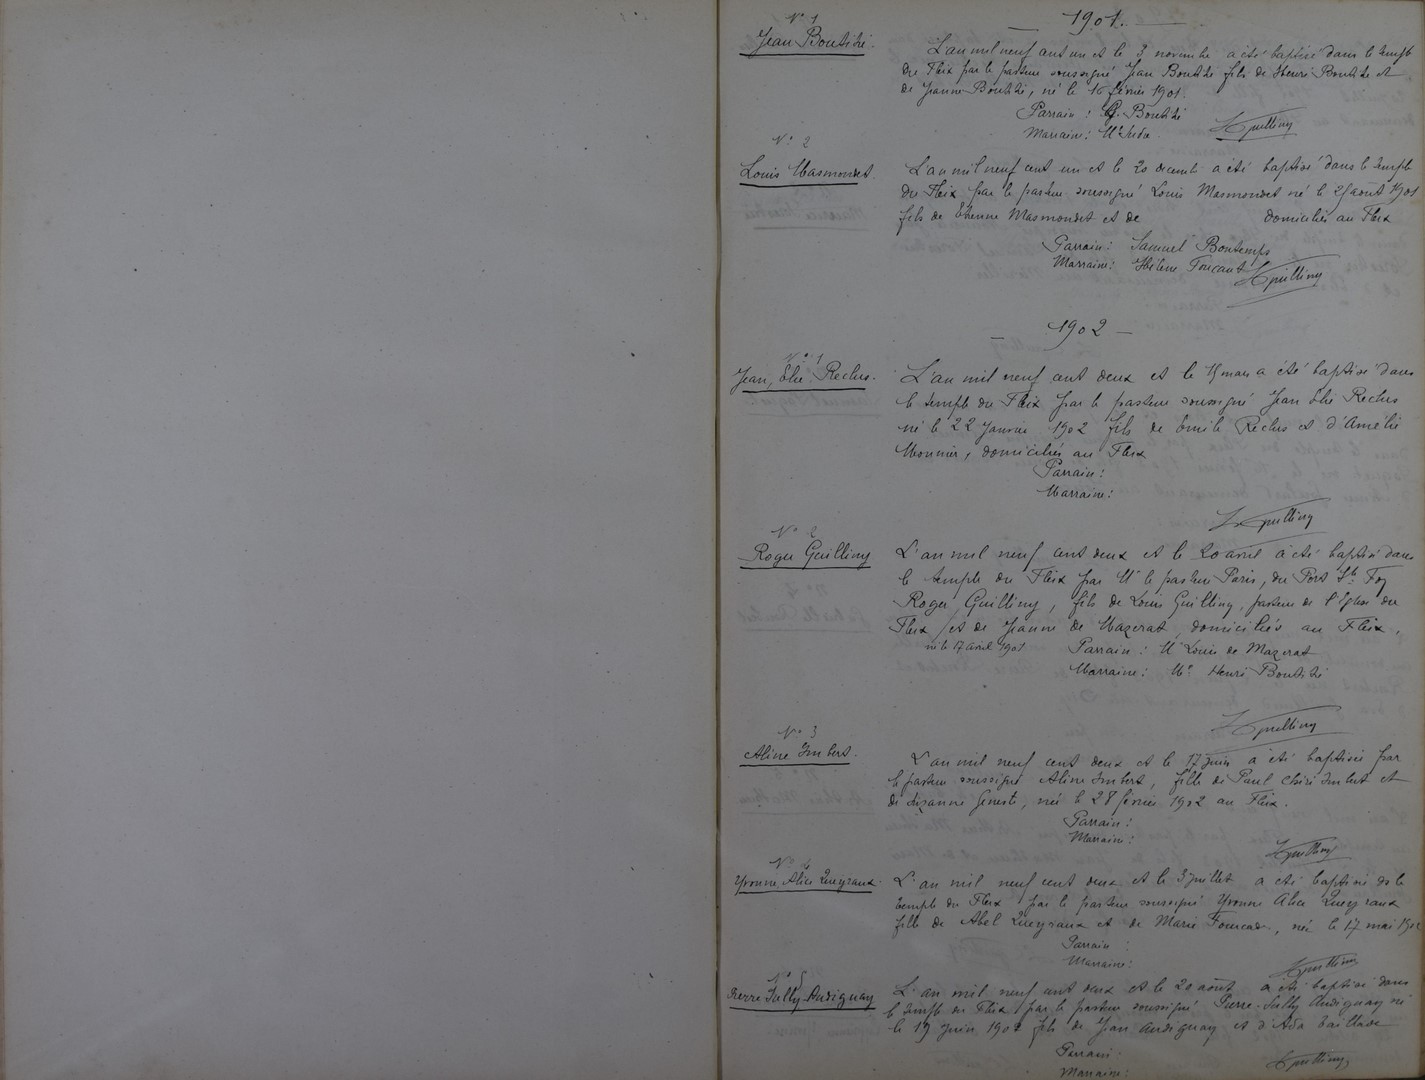 1901.
N° 1
Jean Boutité.
L'an mil neuf cent un et le 3 novembre a été baptisé dans le temple
du Fleix par le pasteur soussigné Jean Boutité fils de Henri Boutité et
de Jeanne Boutité, né le 16 février 1901.
Parrain : G. Boutité
Marraine :
LGuilliny
N° 2
Louis Masmondet.
L'an mil neuf cent un et le 20 decemb a été baptisé dans le temple
du Fleix par le pasteur soussigné Louis Masmondet né le août 1901
fils de Etienne Masmondet et de domiciliés au Fleix
Parrain : Samuel Bontemps
Marraine : Hélène Foucaut
LGuilliny
1902
N° 1
Jean, Elie Reclus.
L'an mil neuf cent deux et le mars a été baptisé dans
le temple du Fleix par le pasteur soussigné Jean Elie Reclus
né le 22 Janvier 1902 fils de Emile Reclus et d'Amélie
Monnier, domiciliés au Fleix
Parrain :
Marraine :
LGuilliny
N° 2
Roger Guilliny
L'an mil neuf cent deux et le 20 avril a été baptisé dans
le temple du Fleix par Mr le pasteur Paris, du Port Ste Foy
Roger Guilliny, fils de Louis Guilliny, pasteur de l'Eglise du
Fleix et de Jeanne de Mazerat, domiciliés au Fleix,
né le 17 avril 1901
Parrain : Mr Louis de Mazerat
Marraine : Me Henri Boutité
LGuilliny
N° 3
Aline Imbert.
L'an mil neuf cent deux et le 17 juin a été baptisée par
le pasteur soussigné Aline Imbert, fille de Paul Imbert et
de Suzanne Geneste, née le 28 février 1902 au Fleix.
Parrain :
Marraine :
LGuilliny
N° 4
Yvonne Alice Queyraux
L'an mil neuf cent deux et le 3 juillet a été baptisée ds le
temple du Fleix par le pasteur soussigné Yvonne Alice Queyraux
fille de Abel Queyraux et de Marie Fourcade, née le 17 mai 1902
Parrain :
Marraine :
LGuilliny
N° 5
Pierre Sully Audiguay
L'an mil neuf cent deux et le 20 août a été baptisé dans
le temple du Fleix par le pasteur soussigné Pierre-Sully Audiguay né
le 19 Juin 1902 fils de Jean Audiguay et d'Ada
Parrain :
Marraine :
LGuilliny